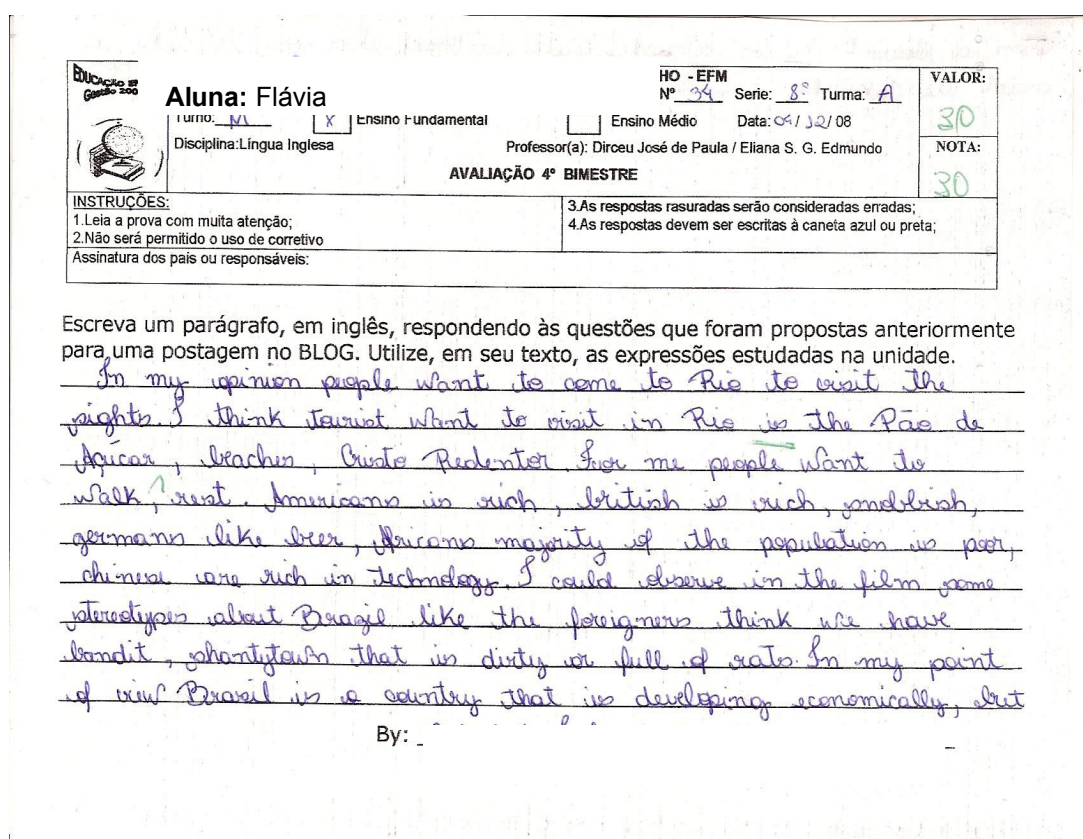 EDUCAÇÃO EM
Gestão 200
HO - EFM
VALOR:
Aluna: Flávia
Nº 34 Serie: 8ª Turma: A
30
Turno: M X Ensino Fundamental Ensino Médio Data: 04/12/08
Disciplina:Língua Inglesa Professor(a): Dirceu José de Paula / Eliana S. G. Edmundo
NOTA:
AVALIAÇÃO 4º BIMESTRE
30
INSTRUÇÕES:
1.Leia a prova com muita atenção;
2.Não será permitido o uso de corretivo
3.As respostas rasuradas serão consideradas erradas;
4.As respostas devem ser escritas à caneta azul ou preta;
Assinatura dos pais ou responsáveis:
Escreva um parágrafo, em inglês, respondendo às questões que foram propostas anteriormente
para uma postagem no BLOG. Utilize, em seu texto, as expressões estudadas na unidade.
In my opinion people want to come to Rio to visit the
sights. I think tourist want to visit in Rio is the Pão de
Açucar, beaches, Cristo Redentor. For me people want to
walk, rest. Americans is rich, british is rich, snobbish,
germans like beer, Africans majority of the population is poor,
chinese are rich in technology. I could observe in the film some
stereotypes about Brazil like the foreigners think we have
bandit, shantytown that is dirty or full of rats. In my point
of view Brasil is a country that is developing economically, but
By: